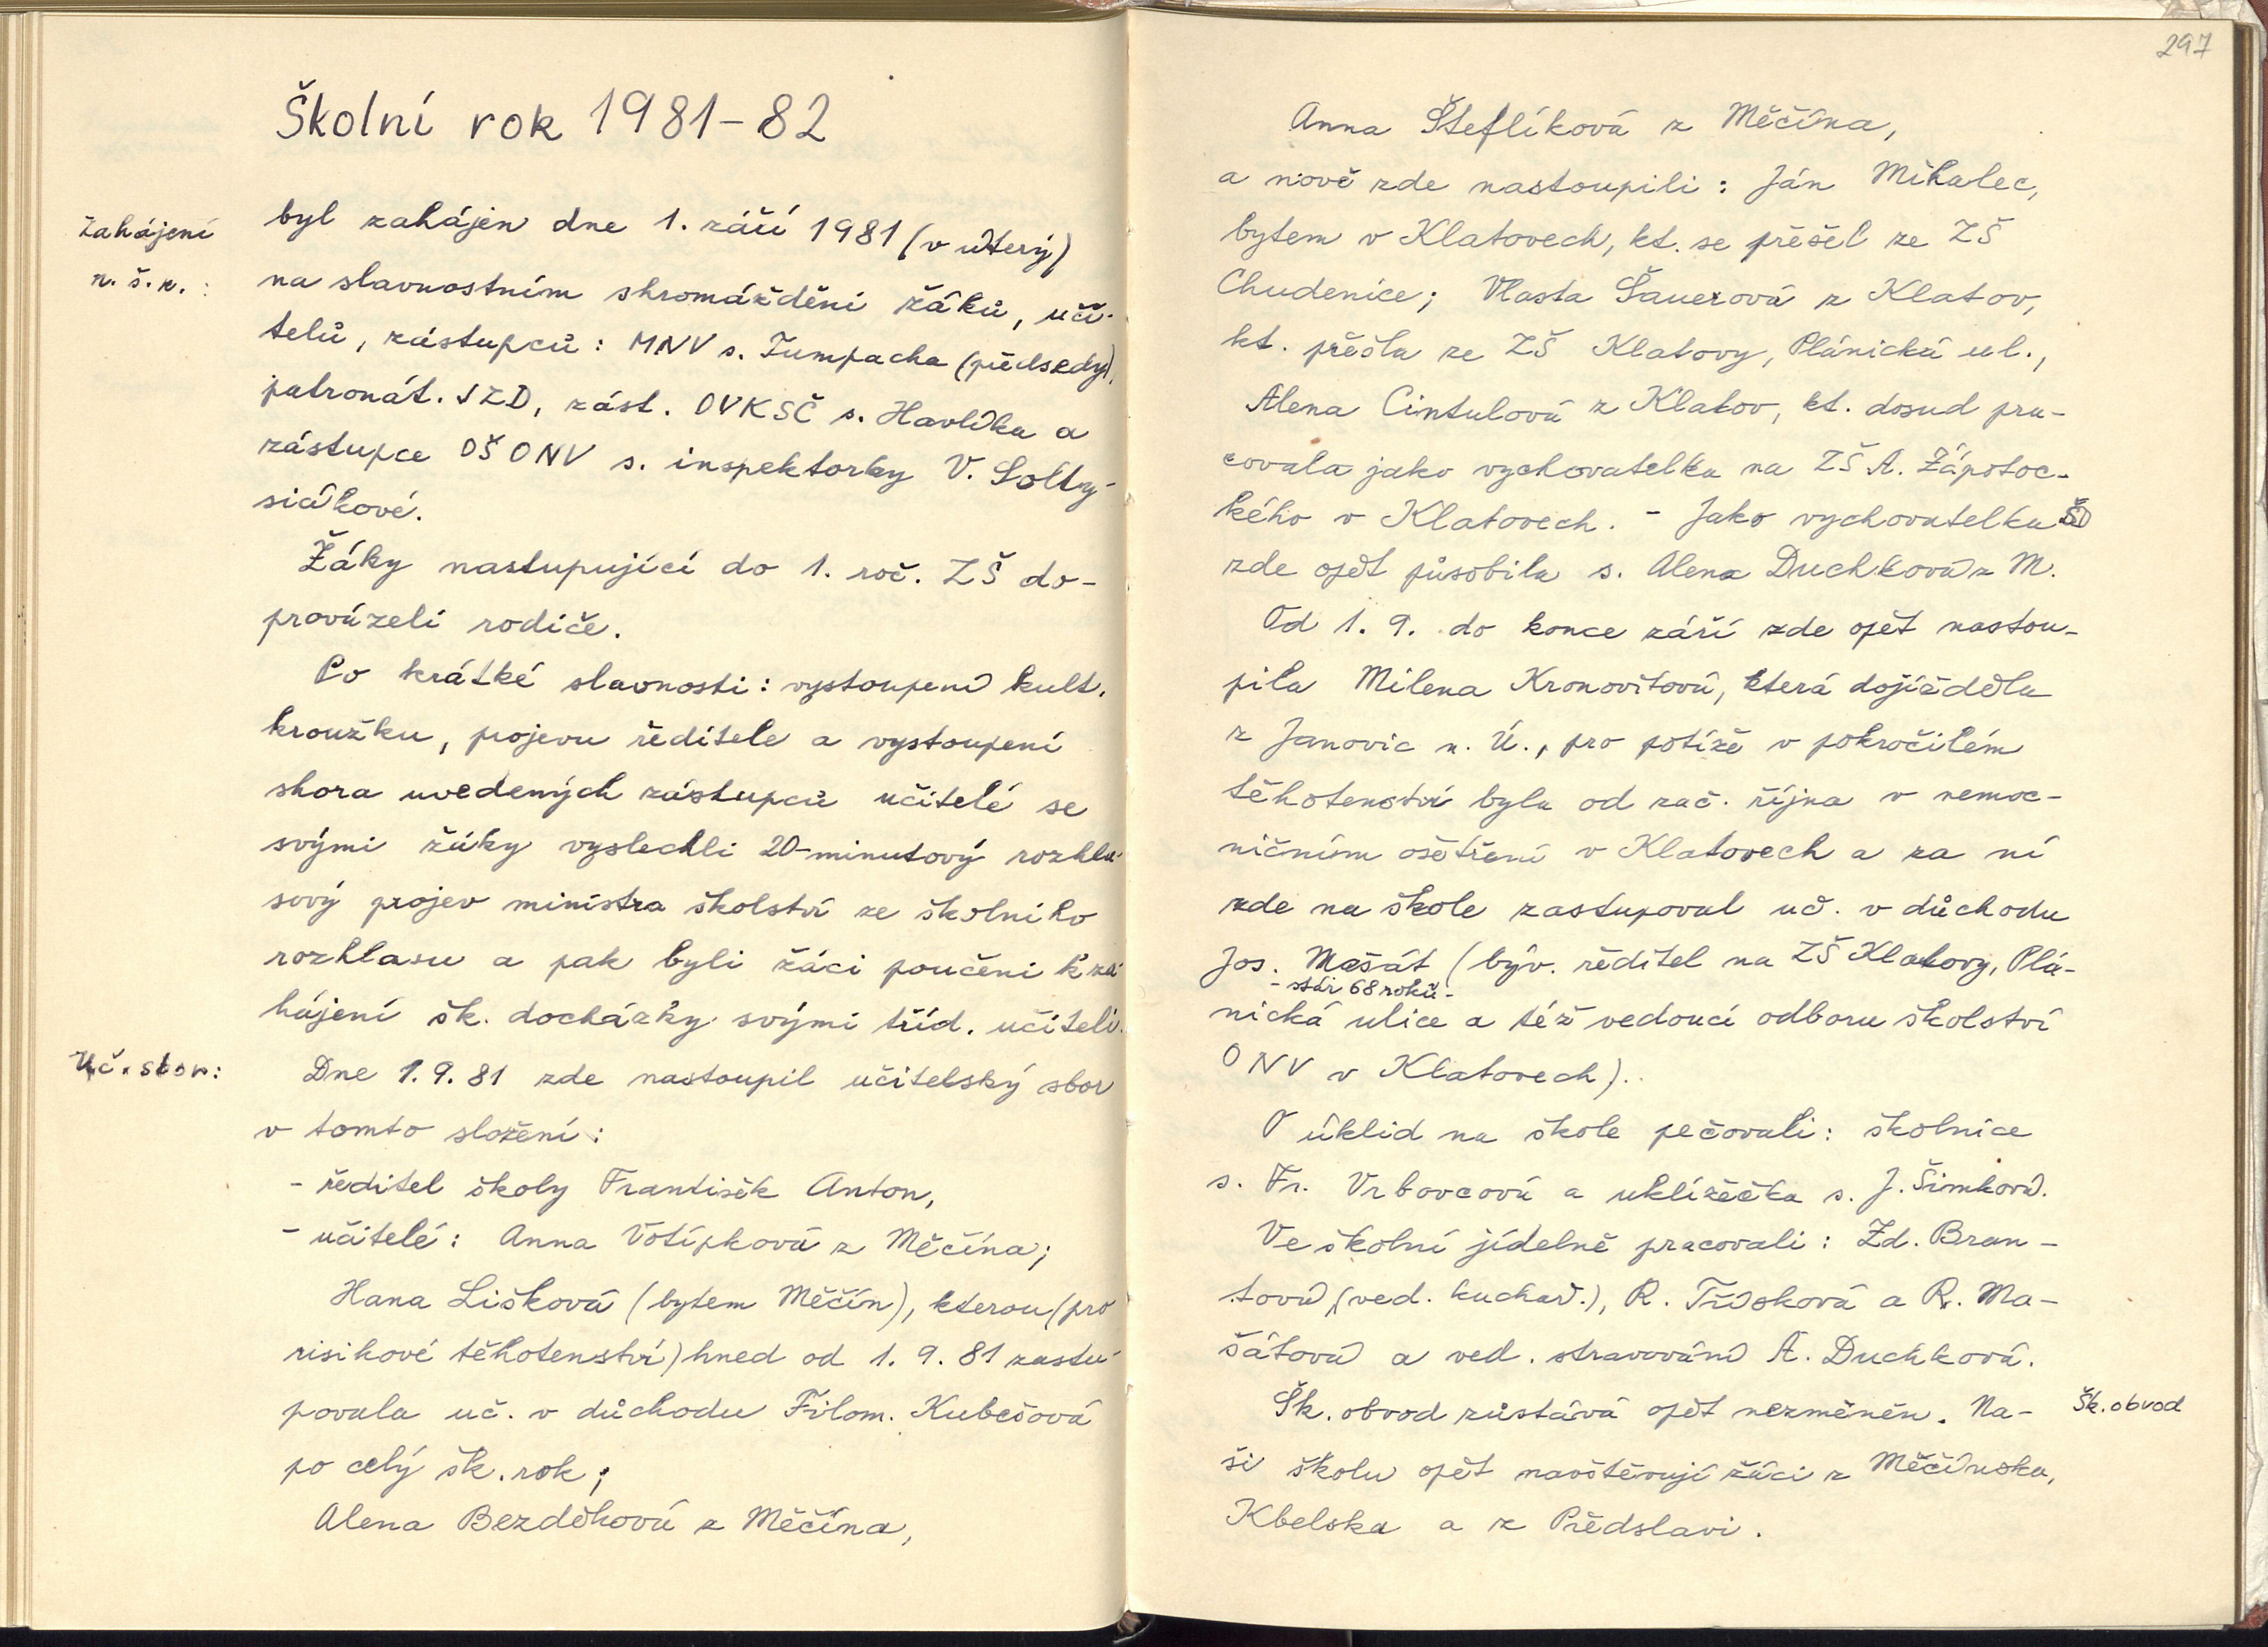 Školní rok 1981-82
Zahájení
n. š. r. :
byl zahájen dne 1. září 1981 (v úterý)
na slavnostním shromáždění žáků, uči-
telů, zástupců: MNV s. Tumpacha (předsedy),
patronát. JZD, zást. OVKSČ s. Havlíka a
zástupce OŠ ONV s. inspektorky V. Solty-
siákové.
Žáky nastupující do 1. roč. ZŠ do-
provázeli rodiče.
Po krátké slavnosti: vystoupení kult.
kroužku, projevu ředitele a vystoupení
shora uvedených zástupců učitelé se
svými žáky vyslechli 20-minutový rozhla-
sový projev ministra školství ze školního
rozhlasu a pak byli žáci poučeni k za-
hájení šk. docházky svými tříd. učiteli.
Uč. sbor:
Dne 1. 9. 81 zde nastoupil učitelský sbor
v tomto složení:
- ředitel školy František Anton,
- učitelé: Anna Votípková z Měčína;
Hana Lišková (bytem Měčín), kterou (pro
risikové těhotenství) hned od 1. 9. 81 zastu-
povala uč. v důchodu Filom. Kubešová
po celý šk. rok;
Alena Bezděková z Měčína,
297
Anna Šteflíková z Měčína,
a nově zde nastoupili: Ján Mihalec,
bytem v Klatovech, kt. se přešel ze ZŠ
Chudenice; Vlasta Šauerová z Klatov,
kt. přešla ze ZŠ Klatovy, Plánická ul.,
Alena Cintulová z Klatov, kt. dosud pra-
covala jako vychovatelka na ZŠ A. Zápotoc-
kého v Klatovech. - Jako vychovatelka ŠD
zde opět působila s. Alena Duchková z M.
Od 1. 9. do konce září zde opět nastou-
pila Milena Kronovitová, která dojížděla
z Janovic n. Ú., pro potíže v pokročilém
těhotenství byla od zač. října v nemoc-
ničním ošetření v Klatovech a za ní
zde na škole zastupoval uč. v důchodu
Jos. Mašát (býv. ředitel na ZŠ Klatovy, Plá-
- stár 68 roků -
nická ulice a též vedoucí odboru školství
ONV v Klatovech).
O úklid na škole pečovali: školnice
s. Fr. Vrbovcová a uklízečka s. J. Šimková.
Ve školní jídelně pracovali: Zd. Bran-
tová (ved. kuchař.), R. Třísková a R. Ma-
šátová a ved. stravování A. Duchková.
Šk. obvod zůstává opět nezměněn. Na-
Šk. obvod
ši školu opět navštěvují žáci z Měčínska,
Kbelska a z Předslavi.